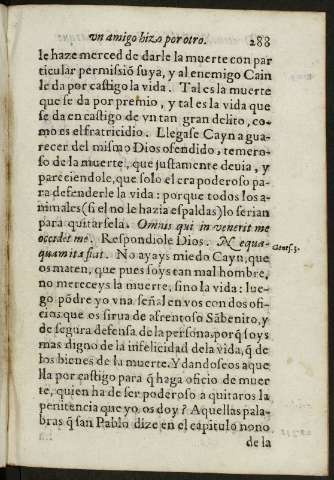 vn amigo hizo por otro. 288
le haze merced de darle la muerte con par
ticular permissiõ suya, y al enemigo Cain
le da por castigo la vida. Tal es la muerte
que se da por premio, y tal es la vida que
se da en castigo de vn tan gran delito, co-
mo es el fratricidio. Llegase Cayn a gua-
recer del mismo Dios ofendido, temero-
so de la muerte, que justamente deuia, y
pareciendole, que solo el era poderoso pa-
ra defenderle la vida: porque todos los a-
nimales (si el no le hazia espaldas) lo serian
para quitarsela. Omnis qui in venerit me
occidet me. Respondiole Dios. Nequa-
quam ita fiat. No ayays miedo Cayn, que
Genes. 3.
os maten, que pues soys tan mal hombre,
no mereceys la muerte, sino la vida: lue-
go põdre yo vna señal en vos con dos ofi-
cios que os sirua de afrentoso Sãbenito, y
de segura defensa de la persona, porq̃ soys
mas digno de la infelicidad de la vida, q̃ de
los bienes de la muerte. Y dandoseos aque
lla por castigo para q̃ haga oficio de muer
te, quien ha de ser poderoso a quitaros la
penitencia que yo os doy? Aquellas pala-
bras q̃ san Pablo dize en el capitulo nono
de la